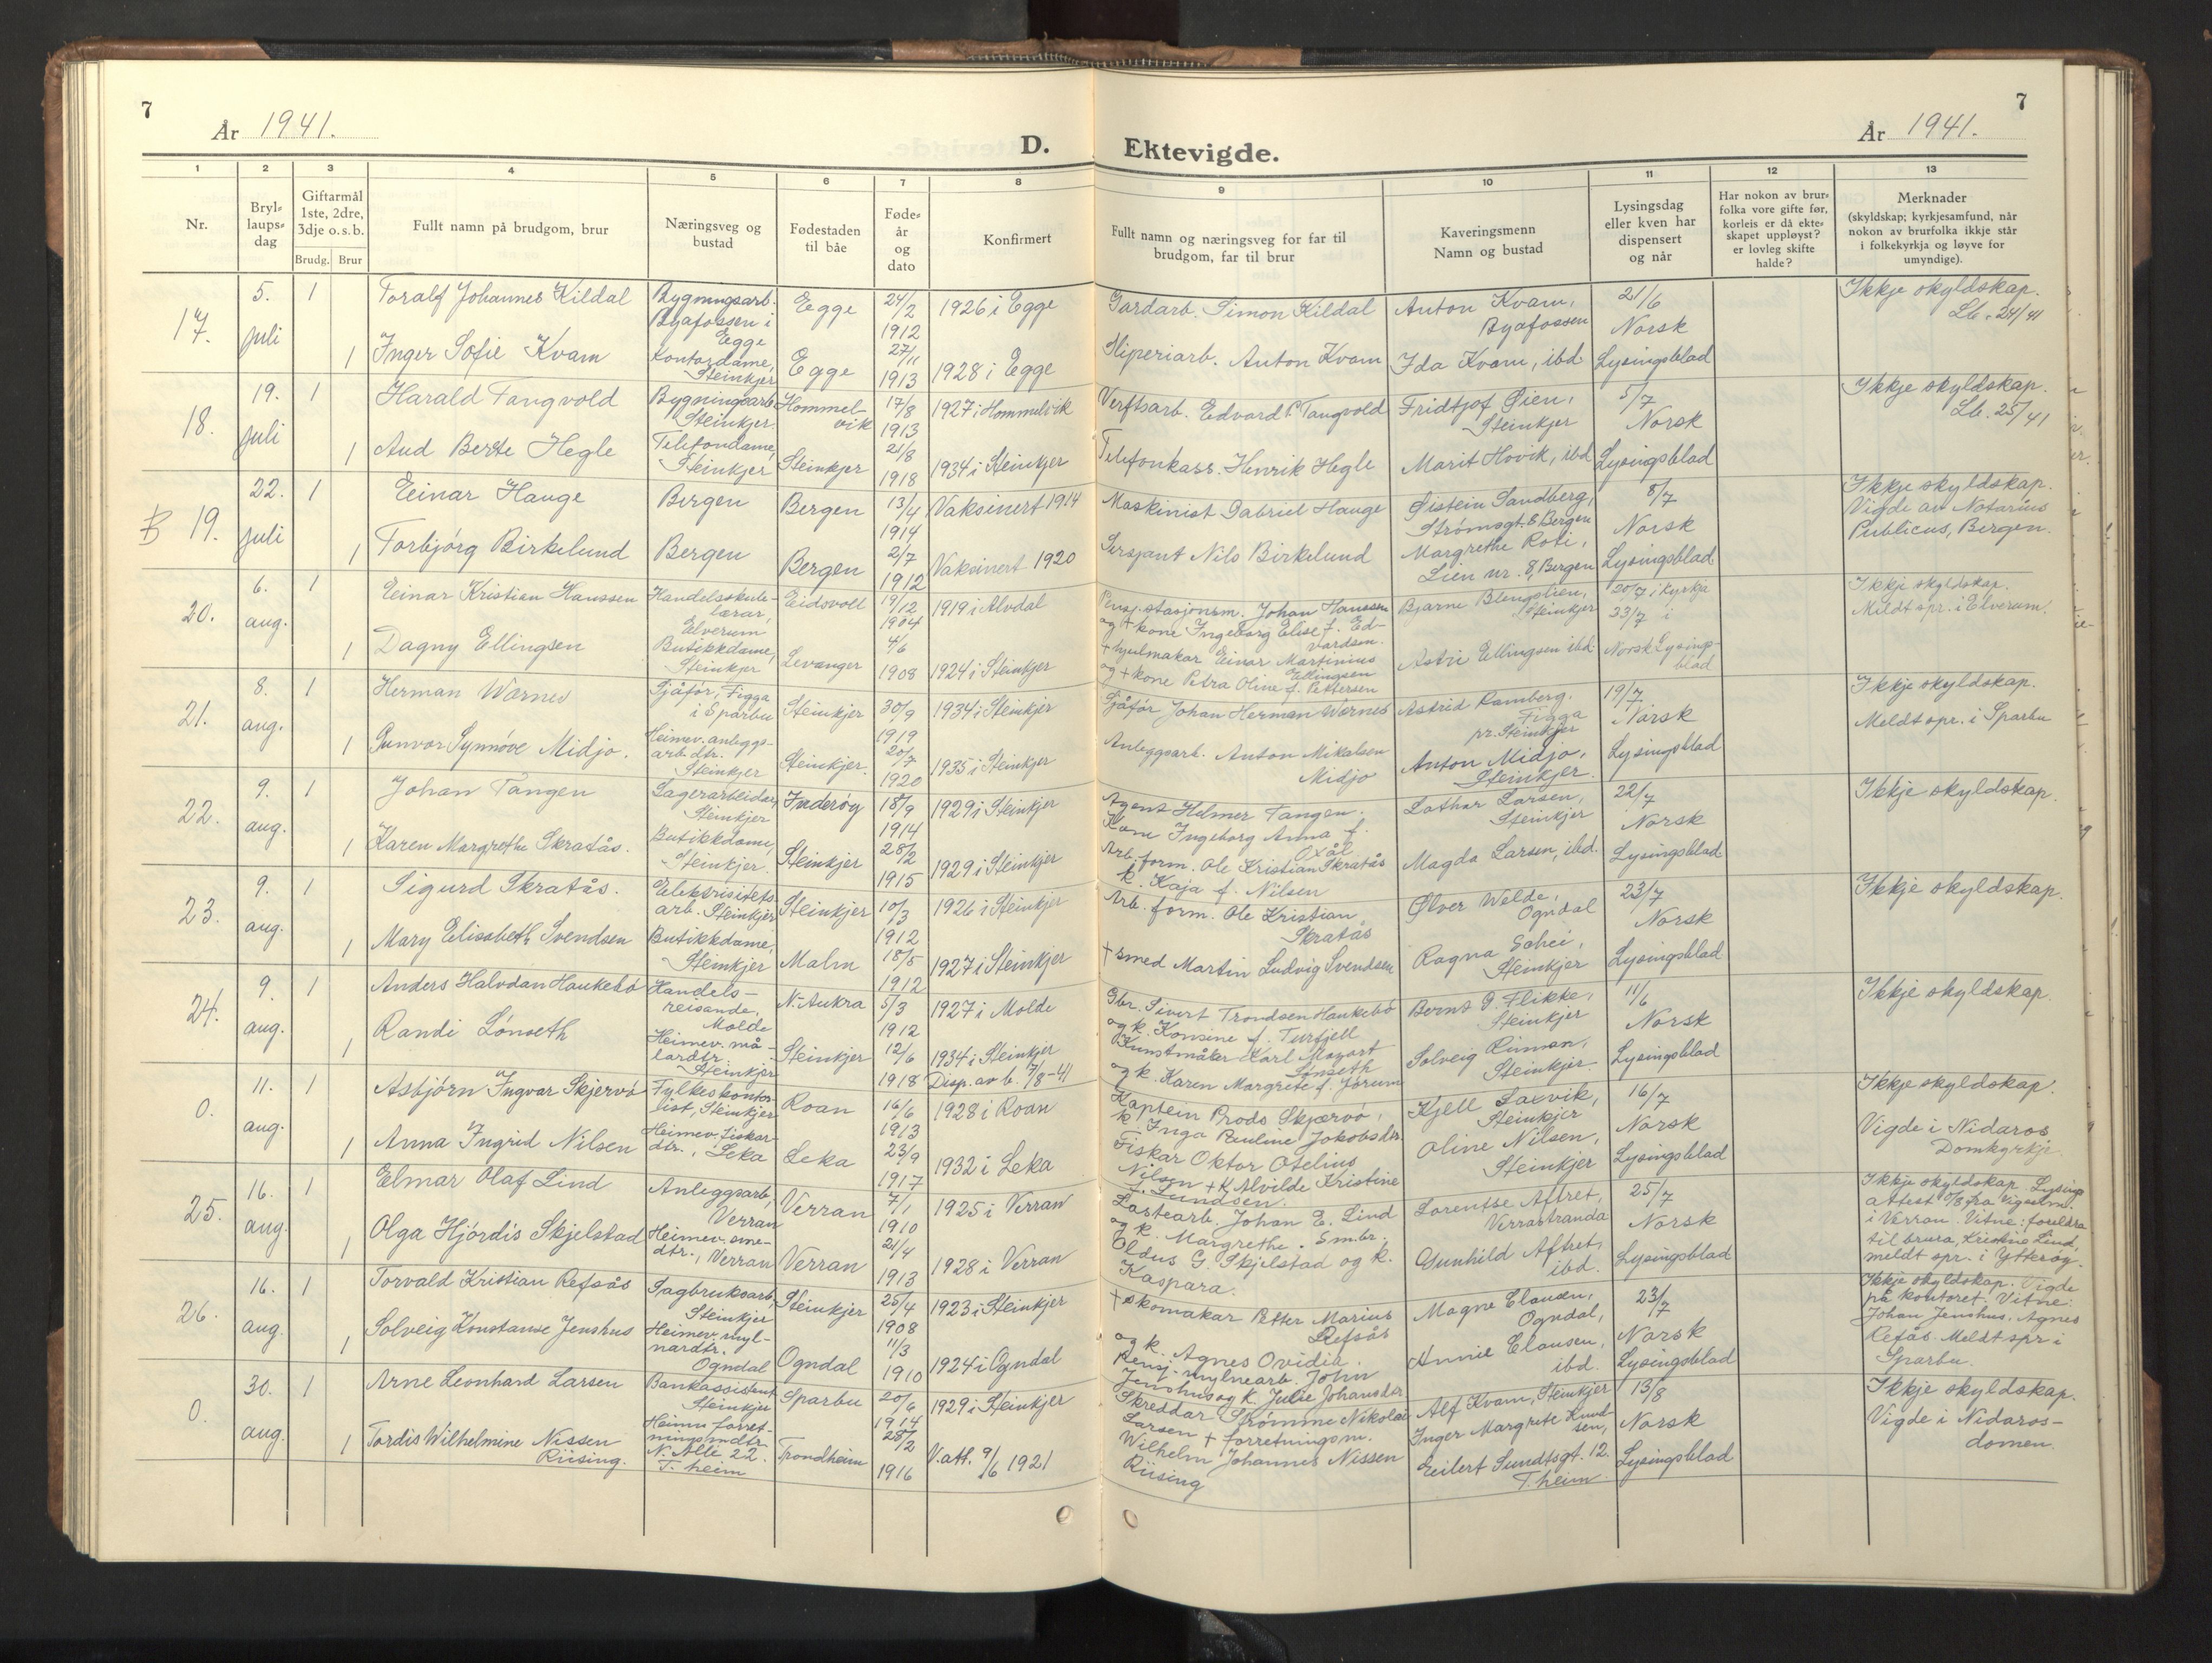 7
År 1941.
D. Ektevigde.
År 1941.
7
1
Nr.
2
Bryl-
laups-
dag
3
Giftarmål
1ste, 2dre,
3dje o. s. b.
Brudg. Brur
4
Fullt namn på brudgom, brur
5
Næringsveg og
bustad
6
Fødestaden
til båe
7
Føde-
år
og
dato
8
Konfirmert
9
Fullt namn og næringsveg for far til
brudgom, far til brur
10
Kaveringsmenn
Namn og bustad
11
Lysingsdag
eller kven har
dispensert
og når
12
Har nokon av brur-
folka vore gifte før,
korleis er då ekte-
skapet uppløyst?
er lovleg skifte
halde?
13
Merknader
(skyldskap; kyrkjesamfund, når
nokon av brurfolka ikkje står
i folkekyrkja og løyve for
umyndige).
17.
5.
juli
1
Toralf Johannes Kildal
Bygningsarb.
Byafossen i
Egge
Egge
24/2
1912
1926 i Egge
Gardarb. Simon Kildal
Anton Kvam,
Byafossen
21/6
Norsk
Lysingsblad
Ikkje skyldskap.
Lb. 24/41
1
Inger Sofie Kvam
Kontordame,
Steinkjer
Egge
27/11
1913
1928 i Egge
Sliperiarb. Anton Kvam
Ida Kvam, ibd
18.
19.
juli
1
Harald Tangvold
Bygningsarb.
Steinkjer.
Hommel-
vik
17/8
1913
1927 i Hommelvik
Verftsarb. Edvard P. Tangvold
Fridtjof Øien,
Steinkjer
5/7
Norsk
Lysingsblad
Ikkje skyldskap.
Lb. 25/41
1
Aud Berte Hegle
Telefondame,
Steinkjer
Steinkjer
21/8
1918
1934 i Steinkjer
Telefonkass. Henrik Hegle
Marit Hovik, ibd
B 19.
22.
juli
1
Einar Hauge
Bergen
Bergen
13/4
1914
Vaksinert 1914
Maskinist Gabriel Hauge
Øistein Sandberg,
Strømsgt. 8 Bergen
8/7
Norsk
Lysingsblad
Ikkje skyldskap.
Vigde av Notarius
Publicus, Bergen.
1
Torbjørg Birkelund
Bergen
Bergen
2/7
1912
Vaksinert 1920
Sersjant Nils Birkelund
Margrethe Roti,
Lien nr. 8, Bergen
20.
6.
aug.
1
Einar Kristian Hanssen
Handelsskule-
lærar,
Elverum
Eidsvoll
19/12
1904
1919 i Alvdal
Pensj. stasjonsm. Johan Hanssen
og + kone Ingeborg Elise f. Ed-
vardsen.
Bjarne Blengslien,
Steinkjer
20/7 i Kyrkja
23/7 i
Norsk Lysings-
blad
Ikkje skyldskap.
Mildt spr. i Elverum.
1
Dagny Ellingsen
Butikkdame,
Steinkjer
Levanger
4/6
1908
1924 i Steinkjer
+ hjulmakar Einar Martinius
Ellingsen
og + kone Petra Oline f. Pettersen
Astri Ellingsen ibd
21.
8.
aug.
1
Herman Wornes
Sjåfør, Figga
i Sparbu
Steinkjer
30/9
1919
1934 i Steinkjer
Sjåfør Johan Herman Wornes
Astrid Ramberg.
Figga
pr. Steinkjer
19/7
Norsk
Lysingsblad
Ikkje skyldskap.
Meldt spr. i Sparbu
1
Gunvor Synnøve Midjo.
Heimev. anleggs-
arb. dtr.
Steinkjer
Steinkjer.
20/7
1920
1935 i Steinkjer
Anleggsarb. Anton Mikalsen
Midjo
Anton Midjo,
Steinkjer.
22.
9.
aug.
1
Johan Tangen
Lagerarbeidar,
Steinkjer
Inderøy
18/9
1914
1929 i Steinkjer
Agent Helmer Tangen.
Kone Ingeborg Anna f.
Oxål
Lathar Larsen,
Steinkjer
22/7
Norsk
Lysingsblad
Ikkje skyldskap.
1
Karen Margrethe Skratås.
Butikkdame,
Steinkjer.
Steinkjer
28/2
1915
1929 i Steinkjer
Arb. form. Ole Kristian Skratås
k. Kaja f. Nilsen
Magda Larsen, ibd.
23.
9.
aug.
1
Sigurd Skratås.
Elektrisitets
arb. Steinkjer
Steinkjer
10/3
1912
1926 i Steinkjer
Arb. form. Ole Kristian
Skratås
Ølver Welde,
Ogndal
23/7
Norsk
Lysingsblad
Ikkje skyldskap.
1
Mary Elisabeth Svendsen
Butikkdame,
Steinkjer
Malm
18/5
1912
1927 i Steinkjer
+ smed Martin Ludvig Svendsen
Ragna Schei,
Steinkjer
24.
9.
aug.
1
Anders Halvdan Haukebø
Handels-
reisande.
Molde
N.-Aukra
5/3
1912
1927 i Molde
Gbr. Sivert Trondsen Haukebø
og k. Konsine f. Turfjell
Bernt G. Flikke,
Steinkjer
11/6
Norsk
Lysingsblad
Ikkje skyldskap.
1
Randi Lønseth
Heimev. må-
lardtr.
Steinkjer
Steinkjer
12/6
1918
1934 i Steinkjer
Disp. av b. 7/8-41
Kunstmåler Karl Mozart
Lønseth
og k. Karen Margrete f. Jørum
Solveig Rinnan,
Steinkjer.
0.
11.
aug.
1
Asbjørn Ingvar Skjervø
Fylkeskontor-
list, Steinkjer
Roan
16/6
1913
1928 i Roan
Kaptein Prods Skjærvø,
k. Inga Pauline Jakobsdtr
Kjell Saxvik,
Steinkjer
16/7
Norsk
Lysingsblad
Ikkje skyldskap.
Vigde i Nidaros
Domkyrkje
1
Anna Ingrid Nilsen
Heimev. fiskar-
dtr., Leka
Leka
23/9
1917
1932 i Leka
Fiskar Oktor Otelius
Nilsen + k. Alvilde Kristine
f. Lundsen.
Oline Nilsen,
Steinkjer
25.
16.
aug.
1
Elmar Olaf Lind
Anleggsarb,
Verran
Verran
7/1
1910
1925 i Verran
Lastearb. Johan E. Lind
og k. Margrethe. Smbr.
Lorentse Aftret,
Verrastranda
25/7
Norsk
Lysingsblad
Ikkje skyldskap. Lysings
attest 11/8 fra vigselm.
i Verran. Vitne: foreldra
til brura, Kristine Lind,
meldt spr. i Ytterøy.
1
Olga Hjørdis Skjelstad
Heimev. sme-
dtr., Verran
Verran
21/4
1913
1928 i Verran
Oldus G. Skjelstad og k.
Kaspara.
Gunhild Aftret,
ibd.
26.
16.
aug.
1
Torvald Kristian Refsås
Sagbruksarb,
Steinkjer
Steinkjer
25/4
1908
1923 i Steinkjer
+ skomakar Petter Marius
Refsås
og k. Agnes Ovidia.
Magne Clausen,
Ogndal,
23/7
Norsk
Lysingsblad
Ikkje skyldskap. Vigde
på kontoret. Vitne:
Johan Jenshus. Agnes
Refsås. Meldt spr i
Sparbu.
1
Solveig Konstanse Jenshus
Heimev. myl-
nardtr.
Ogndal
Ogndal
11/3
1910
1924 i Ogndal
Pensj. mylnearb. John
Jenshus og k. Julie Johansdtr
Annie Clausen,
ibd.
0.
30.
aug.
1
Arne Leonhard Larsen
Bankassistent
Steinkjer
Sparbu
20/6
1914
1929 i Steinkjer
Skreddar Strømme Nikolai
Larsen + forretningsm.
Alf Kvam, Steinkjer
13/8
Norsk
Lysingsblad
Ikkje skyldskap.
Vigde i Nidaros-
domen.
1
Tordis Wilhelmine Nissen
Riising.
Heimv. forret-
ningsmdtr
N. Alle 22.
T. heim
Trondheim
28/2
1916
V. att. 9/6 1921
Wilhelm Johannes Nissen
Riising
Inger Margrete Knud-
sen,
Eilert Sundtsgt. 12.
T. heim